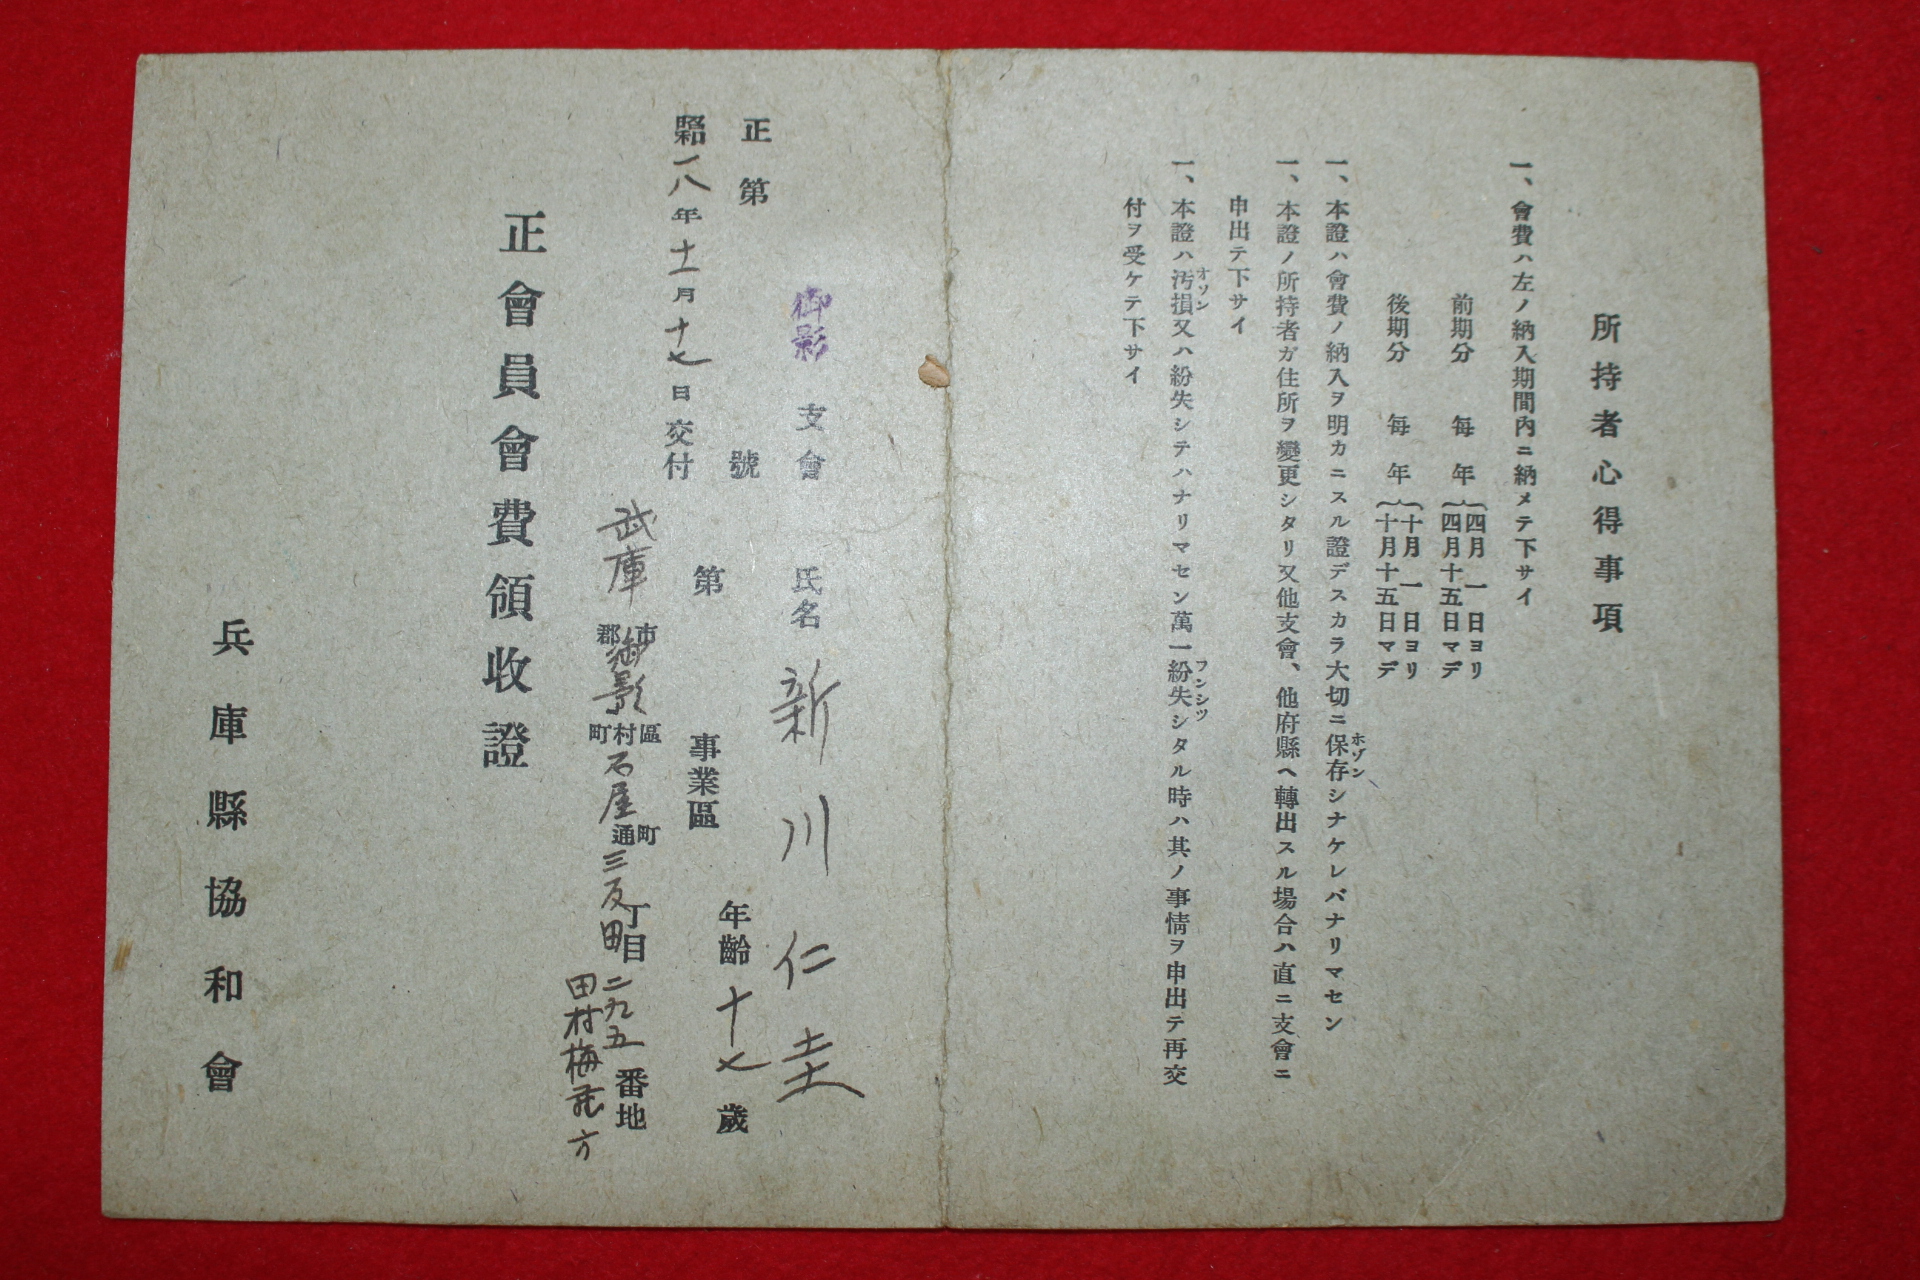 所持者心得事項
一、會費ハ左ノ納入期間内ニ納メテ下サイ
前期分 每年 四月一日ヨリ
四月十五日マデ
後期分 每年 十月一日ヨリ
十月十五日マデ
一、本證ハ會費ノ納入ヲ明カニスル證デスカラ大切ニ保存シナケレバナリマセン
ホゾン
一、本證ノ所持者ガ住所ヲ變更シタリ又他支會、他府縣ヘ轉出スル場合ハ直ニ支會ニ
申出テ下サイ
一、本證ハ汚損又ハ紛失シテハナリマセン萬一紛失シタル時ハ其ノ事情ヲ申出テ再交
オソン フンシツ
付ヲ受ケテ下サイ
御影 支會 氏名 新川仁圭
正第 號 第 事業區 年齡 十七 歲
昭和一八年十一月十七日交付
武庫 市郡 御影 區村町 石屋 町通 三反田 丁目 二九五 番地
田村梅 方
正會員會費領收證
兵庫縣協和會